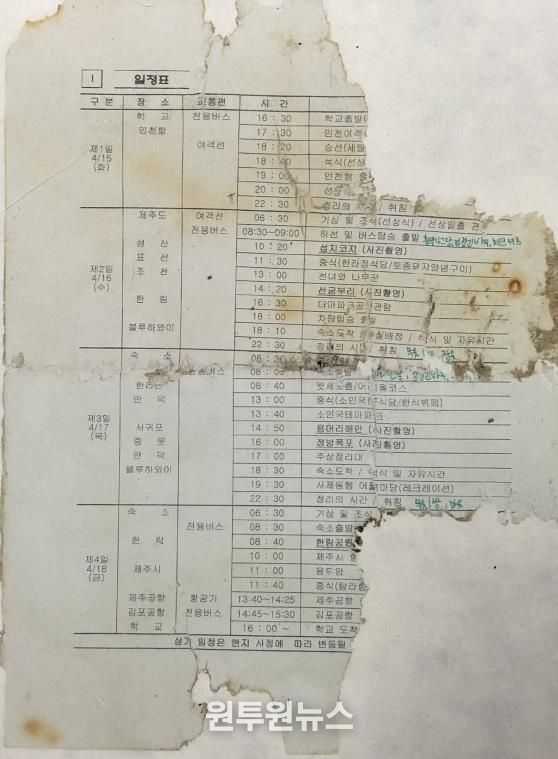 I 일정표
구 분 장 소 교통편 시 간
학 교 전용버스 16 : 30 학교출발
인천항 17 : 30 인천여객
여객선 18 : 20 승선(세월
제1일 4/15 (화) 18 : 40 석식(선상
19 : 00 인천항 출
20 : 00 선상
22 : 30 정리의 / 취침
제주도 여객선 06 : 30 기상 및 조식(선상식) / 선상일출 관
전용버스 08:30~09:00 하선 및 버스탑승 출발
성 산 10 : 20 섭지코지 (사진촬영)
표 선 11 : 30 중식(한라정식당/토종돼지양념구이)
제2일 4/16 (수) 조 천 13 : 00 선녀와 나무꾼
14 : 20 산굼부리 (사진촬영)
한 림 16 : 30 더마파크공연관람
18 : 00 차량탑승 출발
블루하와이 18 : 10 숙소도착 / 실배정 / 석식 및 자유시간
22 : 30 정리의 시간 / 취침
숙 소 06 : 30
08 : 00 숙소출발
한라산 08 : 40 윗세오름/어리목코스
안 덕 13 : 00 중식(소인국 식당/한식뷔페)
제3일 4/17 (목) 13 : 40 소인국테마파크
서귀포 14 : 50 용머리해안 (사진촬영)
중 문 16 : 00 정방폭포 (사진촬영)
안 덕 17 : 00 주상절리대
블루하와이 18 : 30 숙소도착 / 석식 및 자유시간
19 : 30 사제동행 어울마당(레크레이션)
22 : 30 정리의 시간 / 취침
숙 소 06 : 30 기상 및 조식
전용버스 08 : 30 숙소출발
한 림 08 : 40 한림공원
제4일 4/18 (금) 10 : 00 제주시
제주시 11 : 00 용두암
11 : 40 중식(탐라
제주공항 항공기 13:40~14:25 제주공항
김포공항 전용버스 14:45~15:30 김포공항
학 교 16 : 00 ~ 학교 도착
상기 일정은 현지 사정에 따라 변동될
원투원뉴스